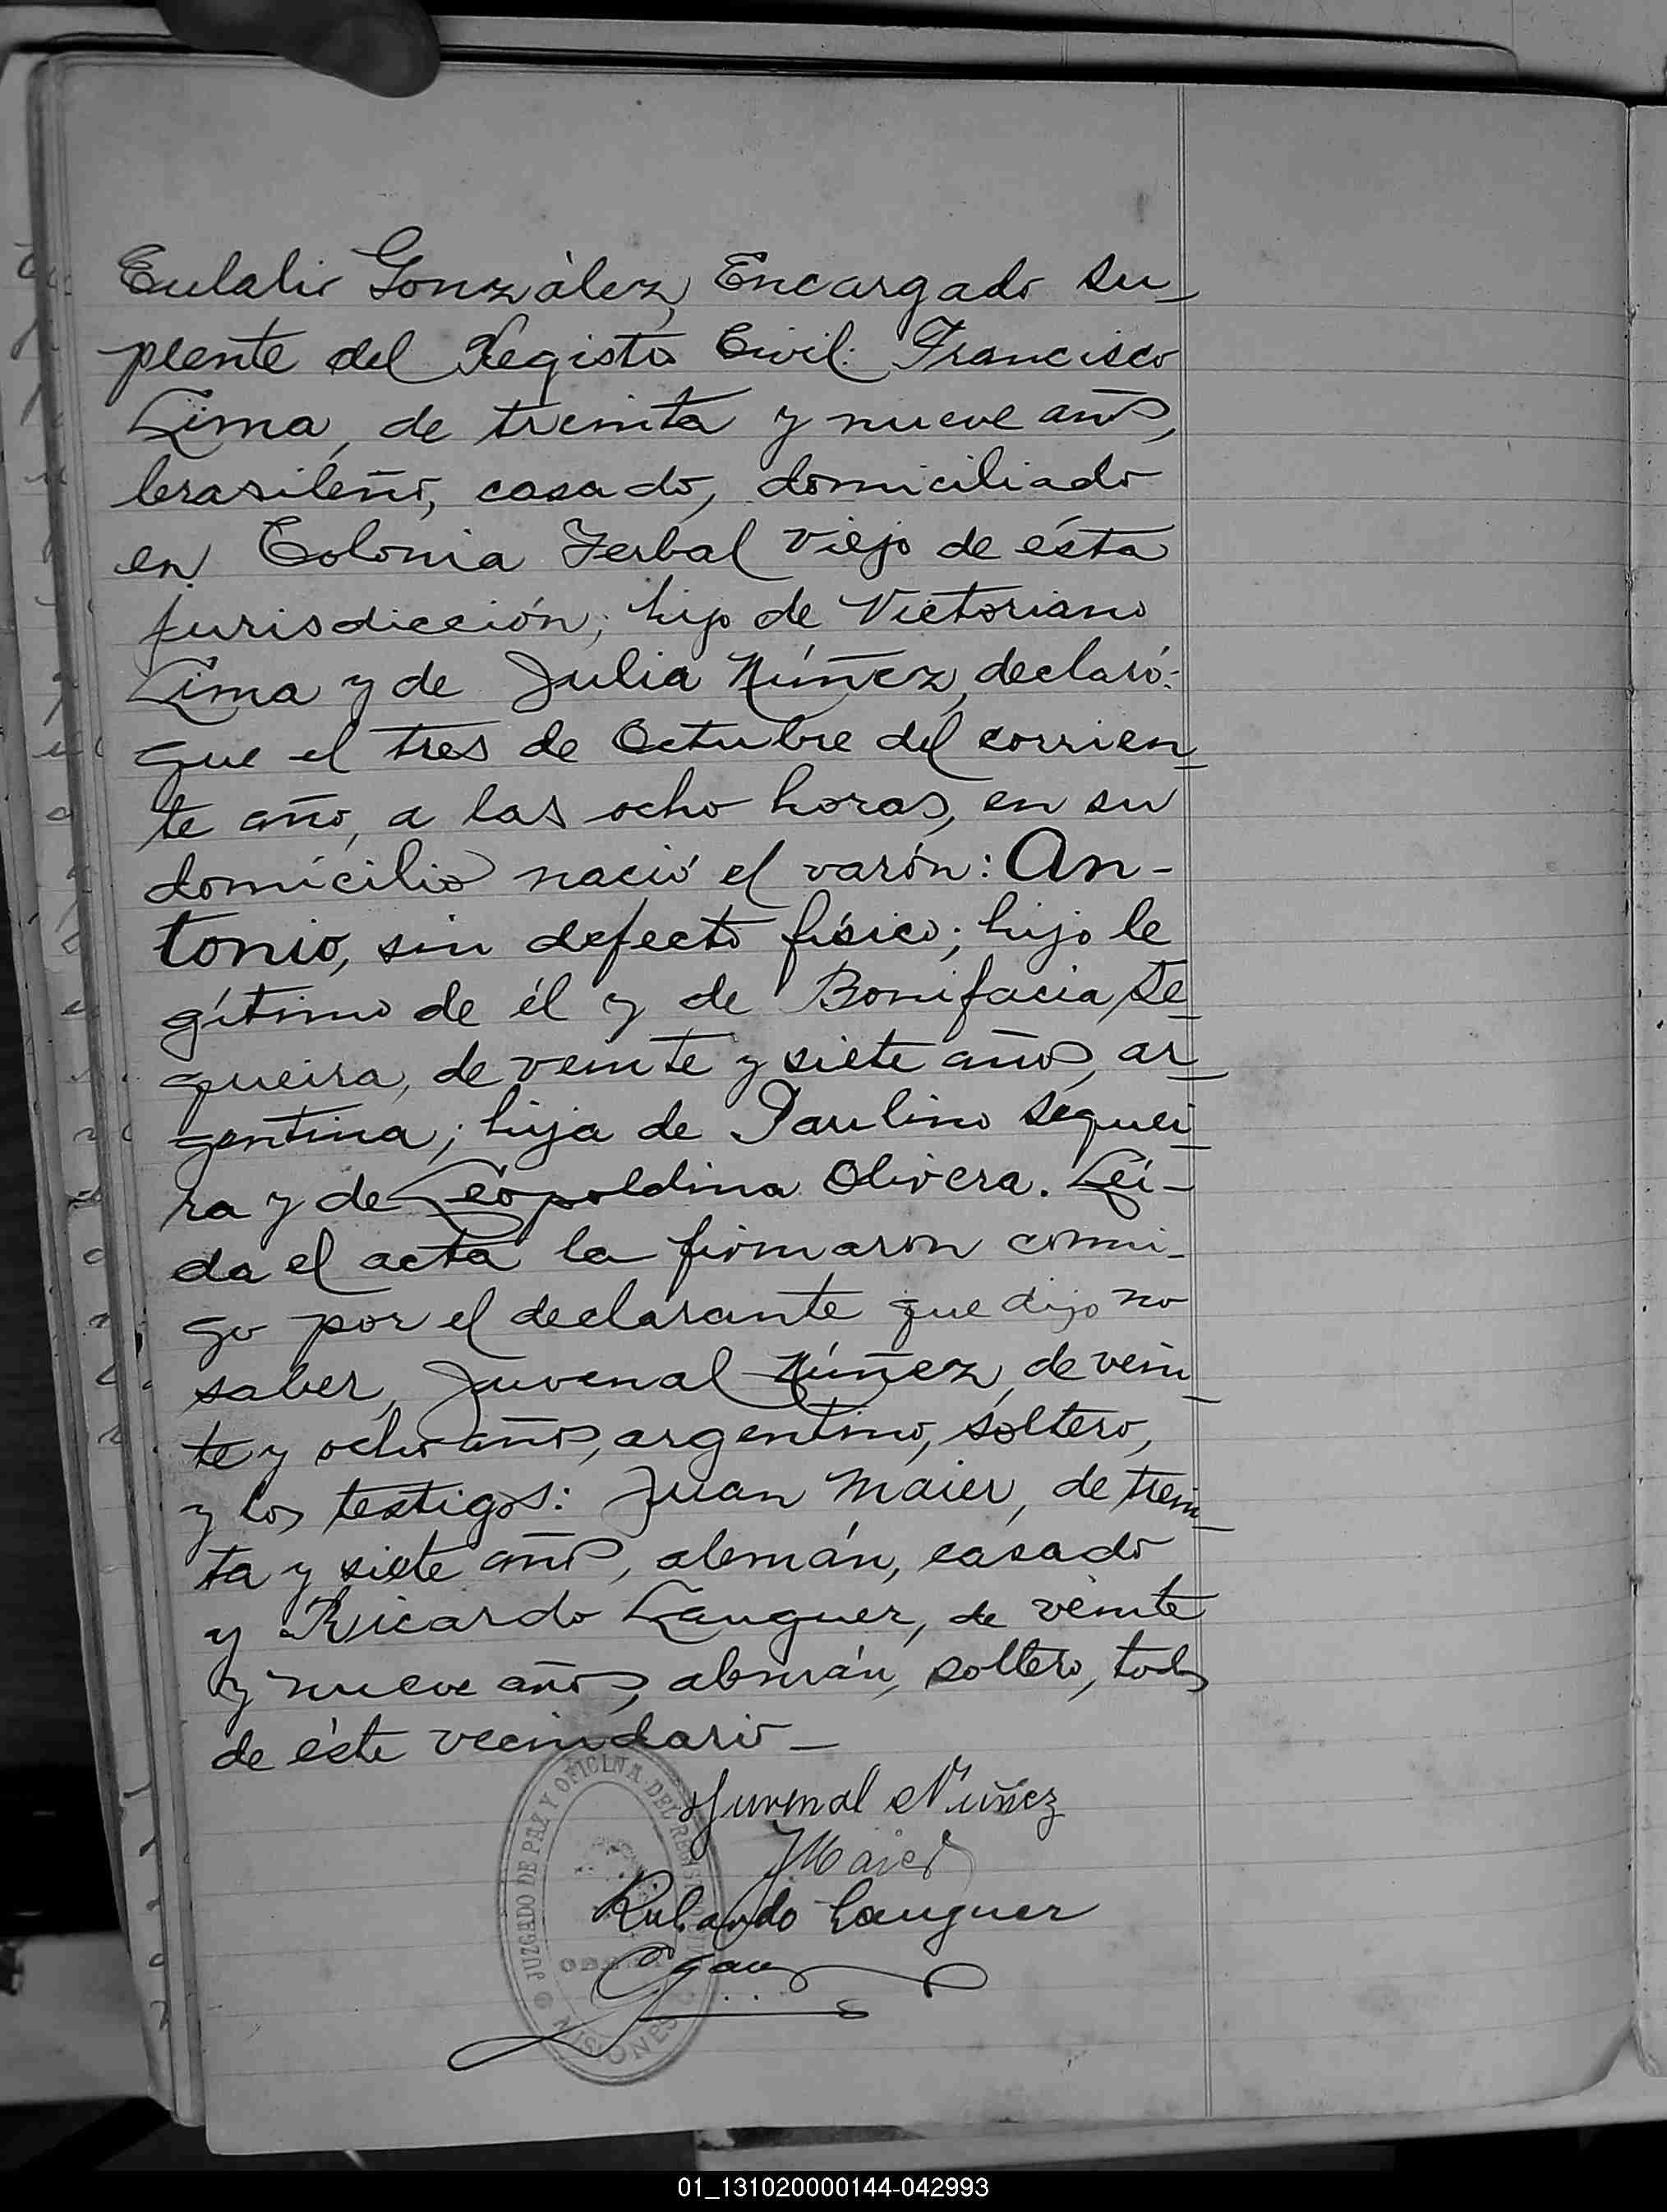 Eulalio González, Encargado su_
plente del Registro Civil: Francisco
Lima, de treinta y nueve años,
brasileño, casado, domiciliado
en Colonia Yerbal viejo de ésta
jurisdicción; hijo de Victoriano
Lima y de Julia Núñez, declaró:
que el tres de Octubre del corrien_
te año, a las ocho horas, en su
domicilio nació el varón: An-
tonio, sin defecto físico; hijo le
gítimo de él y de Bonifacia Se_
queira, de veinte y siete años, ar_
gentina; hija de Paulino Sequei_
ra y de Leopoldina Olivera. Leí-
da el acta la firmaron conmi-
go por el declarante que dijo no
saber, Juvenal Núñez, de vein_
te y ocho años, argentino, soltero,
y los testigos: Juan Maier, de trein_
ta y siete años, alemán, casado
y Ricardo Lauguer, de veinte
y nueve años, alemán, soltero, todos
de éste vecindario_
Juvenal Nuñez
J Maier
Lauguer
JUZGADO DE PAZ Y OFICINA DEL REGISTRO
MISIONES
01_131020000144-042993